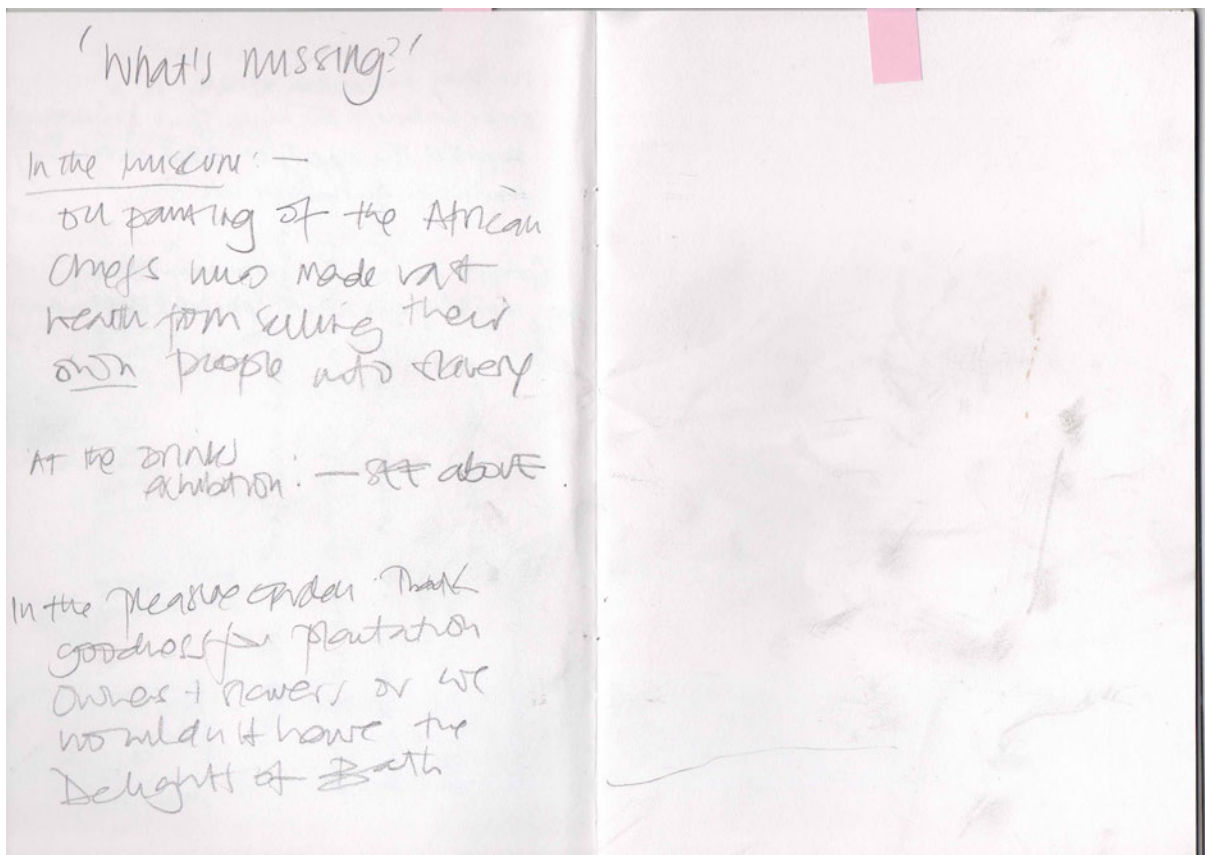 'What's missing?'
In the museum: —
oil painting of the African
Chiefs who made vast
wealth from selling their
own people into slavery
At the Drinks
exhibition: — see above
In the pleasure garden Thank
goodness for plantation
owners + slavers or we
wouldn't have the
Delights of Bath